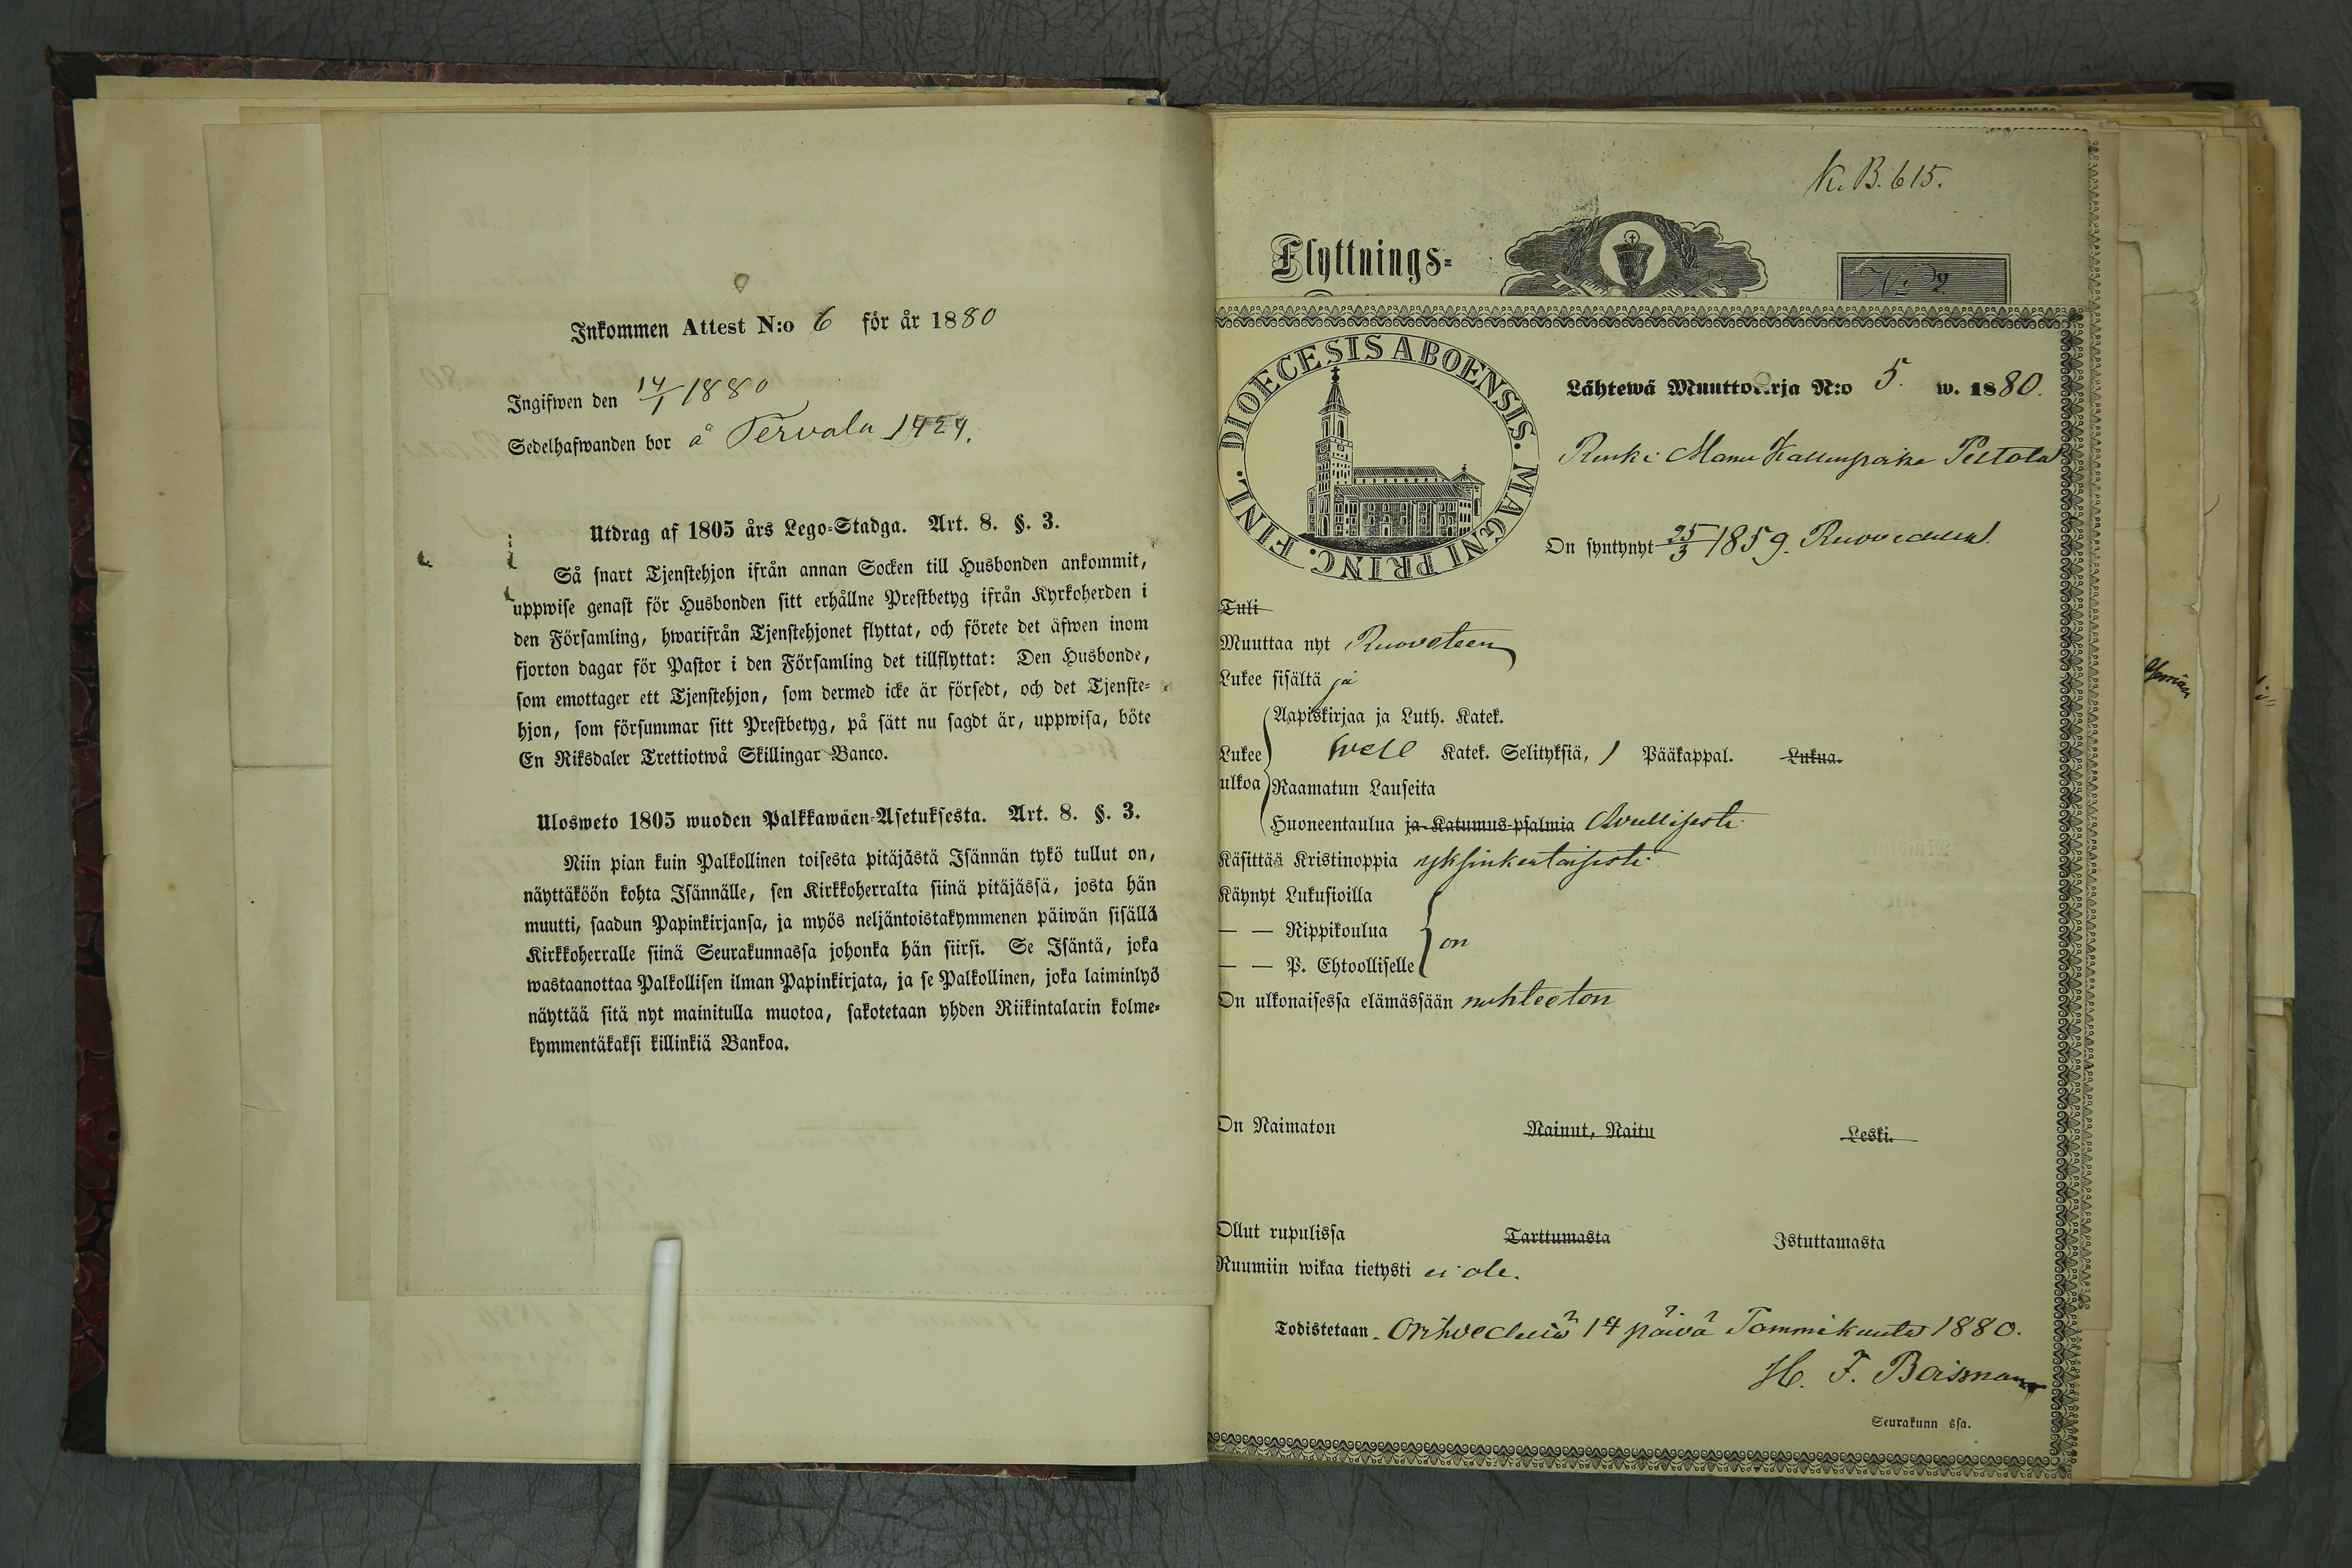 Inkommen Attest N:o 6 för år 1880
Ingifwen den 14/1 1880
Sedelhafwanden bor å Tervala 1424.
Utdrag af 1805 års Lego-Stadga. Art. 8. §. 3.
Så snart Tjenstehjon ifrån annan Socken till Husbonden ankommit,
uppwise genast för Husbonden sitt erhållne Prestbetyg ifrån Kyrkoherden i
den Församling, hwarifrån Tjenstehjonet flyttat, och förete det äfwen inom
fjorton dagar för Pastor i den Församling det tillflyttat: Den Husbonde,
som emottager ett Tjenstehjon, som dermed icke är försedt, och det Tjenste-
hjon, som försummar sitt Prestbetyg, på sätt nu sagdt är, uppwisa, böte
En Riksdaler Trettiotwå Skillingar Banco.
Ulosweto 1805 wuoden Palkkawäen-Asetuksesta. Art. 8. §. 3.
Niin pian kuin Palkollinen toisesta pitäjästä Isännän tykö tullut on,
näyttäköön kohta Isännälle, sen Kirkkoherralta siinä pitäjässä, josta hän
muutti, saadun Papinkirjansa, ja myös neljäntoistakymmenen päiwän sisällä
Kirkkoherralle siinä Seurakunnassa johonka hän siirsi. Se Isäntä, joka
wastaanottaa Palkollisen ilman Papinkirjata, ja se Palkollinen, joka laiminlyö
näyttää sitä nyt mainitulla muotoa, sakotetaan yhden Riikintalarin kolme-
kymmentäkaksi killinkiä Bankoa.
K. B. 615.
Flyttnings-
No 2
DIOECESIS ABOENSIS. MAGNI PRINC. FINL.
Lähtewä Muuttokirja N:o 5. w. 1880.
Renki Manu Kallenpoika Peltola
On syntynyt 25/3 1859. Ruovedellä
Tuli
Muuttaa nyt Ruoveteen
Lukee sisältä ja
Aapiskirjaa ja Luth. Katek.
Lukee ulkoa Katek. Selityksiä, 1 Pääkappal. Lukua.
Raamatun Lauseita
Huoneentaulua ja Katumus-psalmia Avullisesti
Käsittää Kristinoppia yksinkertaisesti
Käynyt Lukusioilla
— — Rippikoulua on
— — P. Ehtoolliselle
On ulkonaisessa elämässään nuhteeton
On Naimaton Nainut, Naitu Leski.
Ollut rupulissa Tarttumasta Istuttamasta
Ruumiin wikaa tietysti ei ole.
Todistetaan. Orihvedellä 14 päivä Tammikuuta 1880.
H. F. Boisman
Seurakunn ssa.